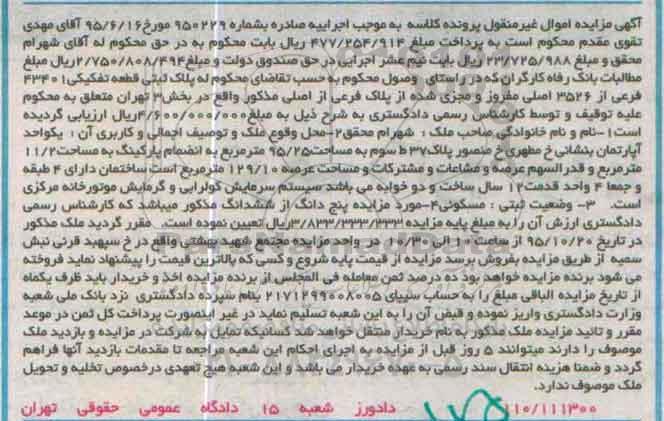 آگهی مزایده اموال غیرمنقول پرونده کلاسه به موجب اجراییه صادره بشماره ۹۵۰۲۲۹ مورخ ۹۵/۶/۱۶ آقای مهدی
تقوی مقدم محکوم است به پرداخت مبلغ ۴۷۷/۲۵۴/۹۱۴ ریال بابت محکوم به در حق محکوم له آقای شهرام
محقق و مبلغ ۲۳/۷۲۵/۹۸۸ ریال بابت نیم عشر اجرایی در حق صندوق دولت و مبلغ ۲/۷۵۰/۸۰۸/۴۹۴ریال مبلغ
مطالبات بانک رفاه کارگران که در راستای وصول محکوم به حسب تقاضای محکوم له پلاک ثبتی قطعه تفکیکی ۴۳۴۰۱
فرعی از ۳۵۲۶ اصلی مفروز و مجزی شده از پلاک فرعی از اصلی مذکور واقع در بخش ۳ تهران متعلق به محکوم
علیه توقیف و توسط کارشناس رسمی دادگستری به شرح ذیل به مبلغ ۴/۶۰۰/۰۰۰/۰۰۰ریال ارزیابی گردیده
است۱-نام و نام خانوادگی صاحب ملک : شهرام محقق۲-محل وقوع ملک و توصیف اجمالی و کاربری آن : یکواحد
آپارتمان بنشانی خ مطهری خ منصور پلاک ۳۷ ط سوم به مساحت ۹۵/۲۵ مترمربع به انضمام پارکینگ به مساحت ۱۱/۲
مترمربع و قدرالسهم عرصه و مشاعات و مشترکات و مساحت عرصه ۱۲۹/۱۰ مترمربع است ساختمان دارای ۴ طبقه
و جمعا ۴ واحد قدمت ۱۲ سال ساخت و دو خوابه می باشد سیستم سرمایش کولرابی و گرمایش موتورخانه مرکزی
است. ۳- وضعیت ثبتی : مسکونی۴-مورد مزایده پنج دانگ از ششدانگ مذکور میباشد که کارشناس رسمی
دادگستری ارزش آن را به مبلغ پایه مزایده ۳/۸۳۳/۳۳۳/۳۳۳ریال تعیین نموده است. مقرر گردید ملک مذکور
در تاریخ ۹۵/۱۰/۲۰ از ساعت ۱۰ الی ۱۰/۳۰ در واحد مزایده مجتمع شهید بهشتی واقع در خ سپهبد قرنی نبش
سمیه از طریق مزایده بفروش برسد مزایده از قیمت پایه شروع و کسی که بالاترین قیمت را پیشنهاد نماید فروخته
می شود برنده مزایده خواهد بود ده درصد ثمن معامله فی المجلس از برنده مزایده اخذ و خریدار باید ظرف یکماه
از تاریخ مزایده الباقی مبلغ را به حساب سیبای ۲۱۷۱۲۹۹۰۰۸۰۰۵ بنام سپرده دادگستری نزد بانک ملی شعبه
وزارت دادگستری واریز نموده و قبض آن را به این شعبه تسلیم نماید در غیر اینصورت پرداخت کل ثمن در موعد
مقرر و تائید مزایده ملک مذکور به نام خریدار منتقل خواهد شد کسانیکه تمایل به شرکت در مزایده و بازدید ملک
موصوف را دارند میتوانند ۵ روز قبل از مزایده به اجرای احکام این شعبه مراجعه تا مقدمات بازدید آنها فراهم
گردد و ضمنا هزینه انتقال سند رسمی به عهده خریدار می باشد و این شعبه هیچ تعهدی درخصوص تخلیه و تحویل
ملک موصوف ندارد.
۱۱۰/۱۱۱۳۰۰ دادورز شعبه ۱۵ دادگاه عمومی حقوقی تهران